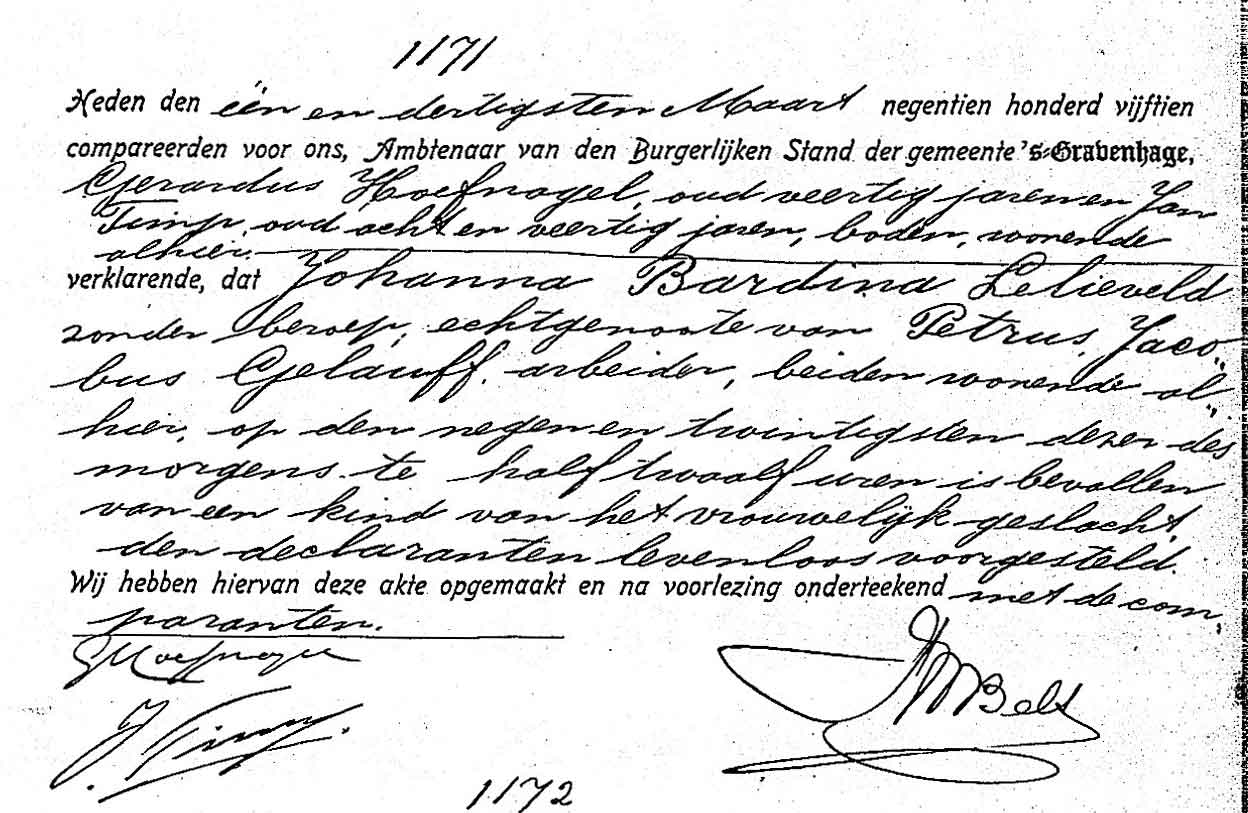 1171
Heden den één en dertigsten Maart negentien honderd vijftien
compareerden voor ons, Ambtenaar van den Burgerlijken Stand der gemeente 's-Gravenhage,
Gerardus Hoefnagel, oud veertig jaren en Jan
Timp, oud acht en veertig jaren, boden, wonende
alhier.
verklarende, dat Johanna Bardina Lelieveld
zonder beroep, echtgenoote van Petrus Jaco„
bus Gelauff, arbeider, beiden wonende al„
hier, op den negen en twintigsten dezer des
morgens te half twaalf uren is bevallen
van een kind van het vrouwelijk geslacht,
den declaranten levenloos voorgesteld.
Wij hebben hiervan deze akte opgemaakt en na voorlezing onderteekend met de com„
paranten.
GHoefnagel
J Timp.
Belt
1172